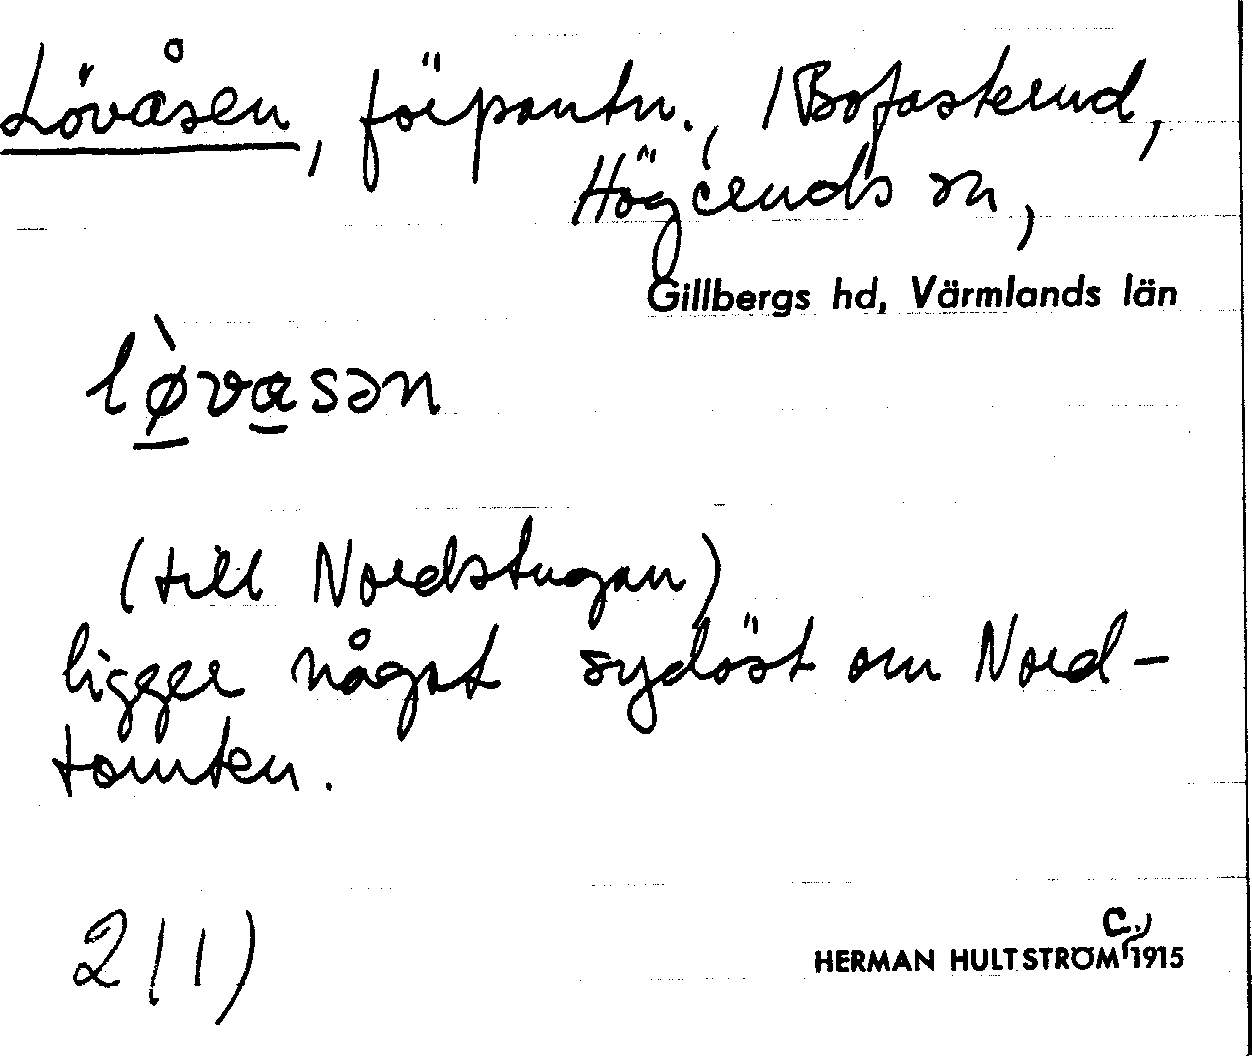 Lövåsen, förpantn., /Bofasterud,
Högeruds sn,
Gillbergs hd, Värmlands län
lø̀vasən
(till Nordstugan)
ligger något sydöst om Nord-
tomten.
2(1)
HERMAN HULTSTRÖM c. 1915